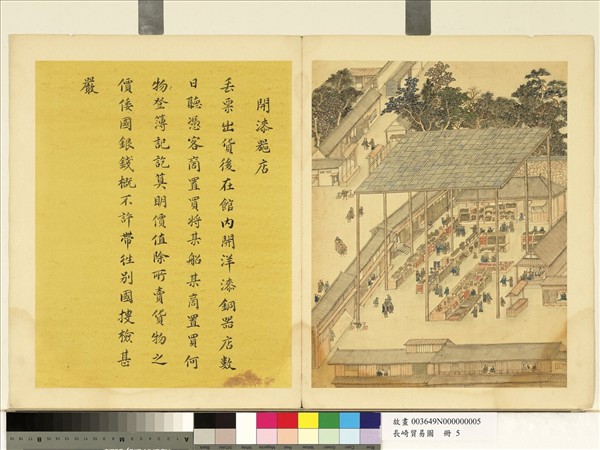 開漆器店
丟票出貨後在館內開洋漆銅器店數
日聽憑客商置買將某船某商置買何
物登簿記訖算明價值除所賣貨物之
價倭國銀錢概不許帶往別國搜檢甚
嚴
故畫 003649N000000005
長崎貿易圖 冊 5